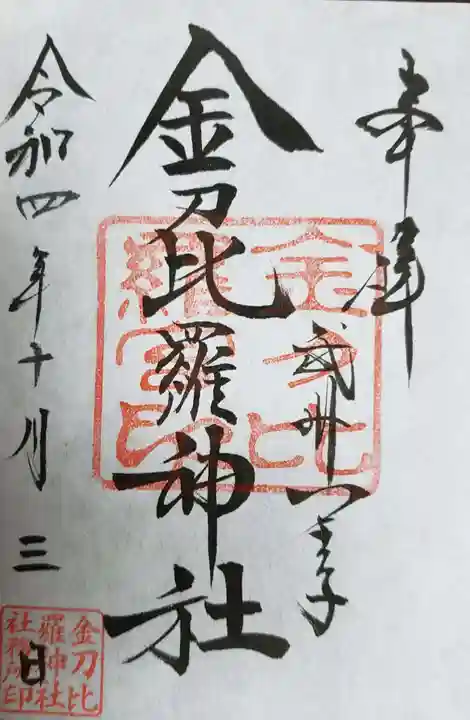 奉拝
武州八王子
金刀比羅神社
令和四年十月三日
金刀比
羅宮印
金刀比
羅神社
社務所印